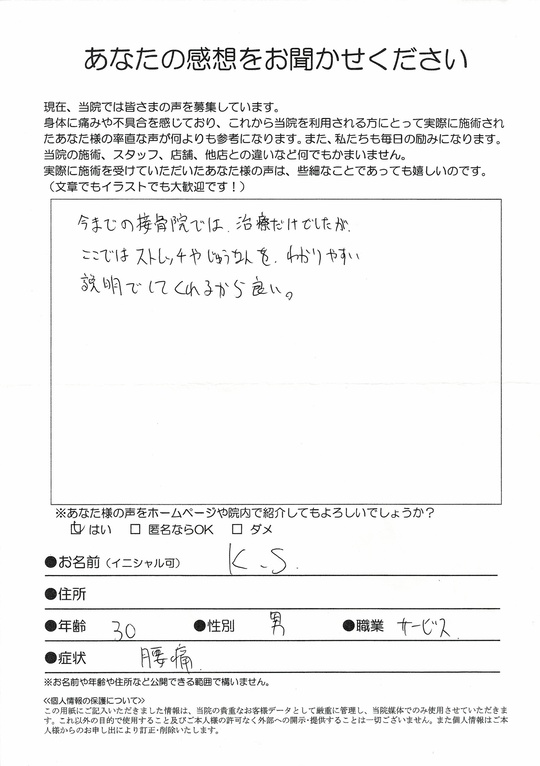 あなたの感想をお聞かせください
現在、当院では皆さまの声を募集しています。
身体に痛みや不具合を感じており、これから当院を利用される方にとって実際に施術され
たあなた様の率直な声が何よりも参考になります。また、私たちも毎日の励みになります。
当院の施術、スタッフ、店舗、他店との違いなど何でもかまいません。
実際に施術を受けていただいたあなた様の声は、些細なことであっても嬉しいのです。
（文章でもイラストでも大歓迎です！）
今までの接骨院では、治療だけでしたが、
ここではストレッチやじゅうなんを、わかりやすい
説明でしてくれるから良い。
※あなた様の声をホームページや院内で紹介してもよろしいでしょうか？
☑ はい □ 匿名ならOK □ ダメ
●お名前（イニシャル可） K.S.
●住所
●年齢 30 ●性別 男 ●職業 サービス
●症状 腰痛
※お名前や年齢や住所など公開できる範囲で構いません。
≪個人情報の保護について≫
この用紙にご記入いただきました情報は、当院の貴重なお客様データとして厳重に管理し、当院媒体でのみ使用させていただきま
す。これ以外の目的で使用すること及びご本人様の許可なく外部への開示・提供することは一切ございません。また個人情報はご本
人様からのお申し出により訂正・削除いたします。